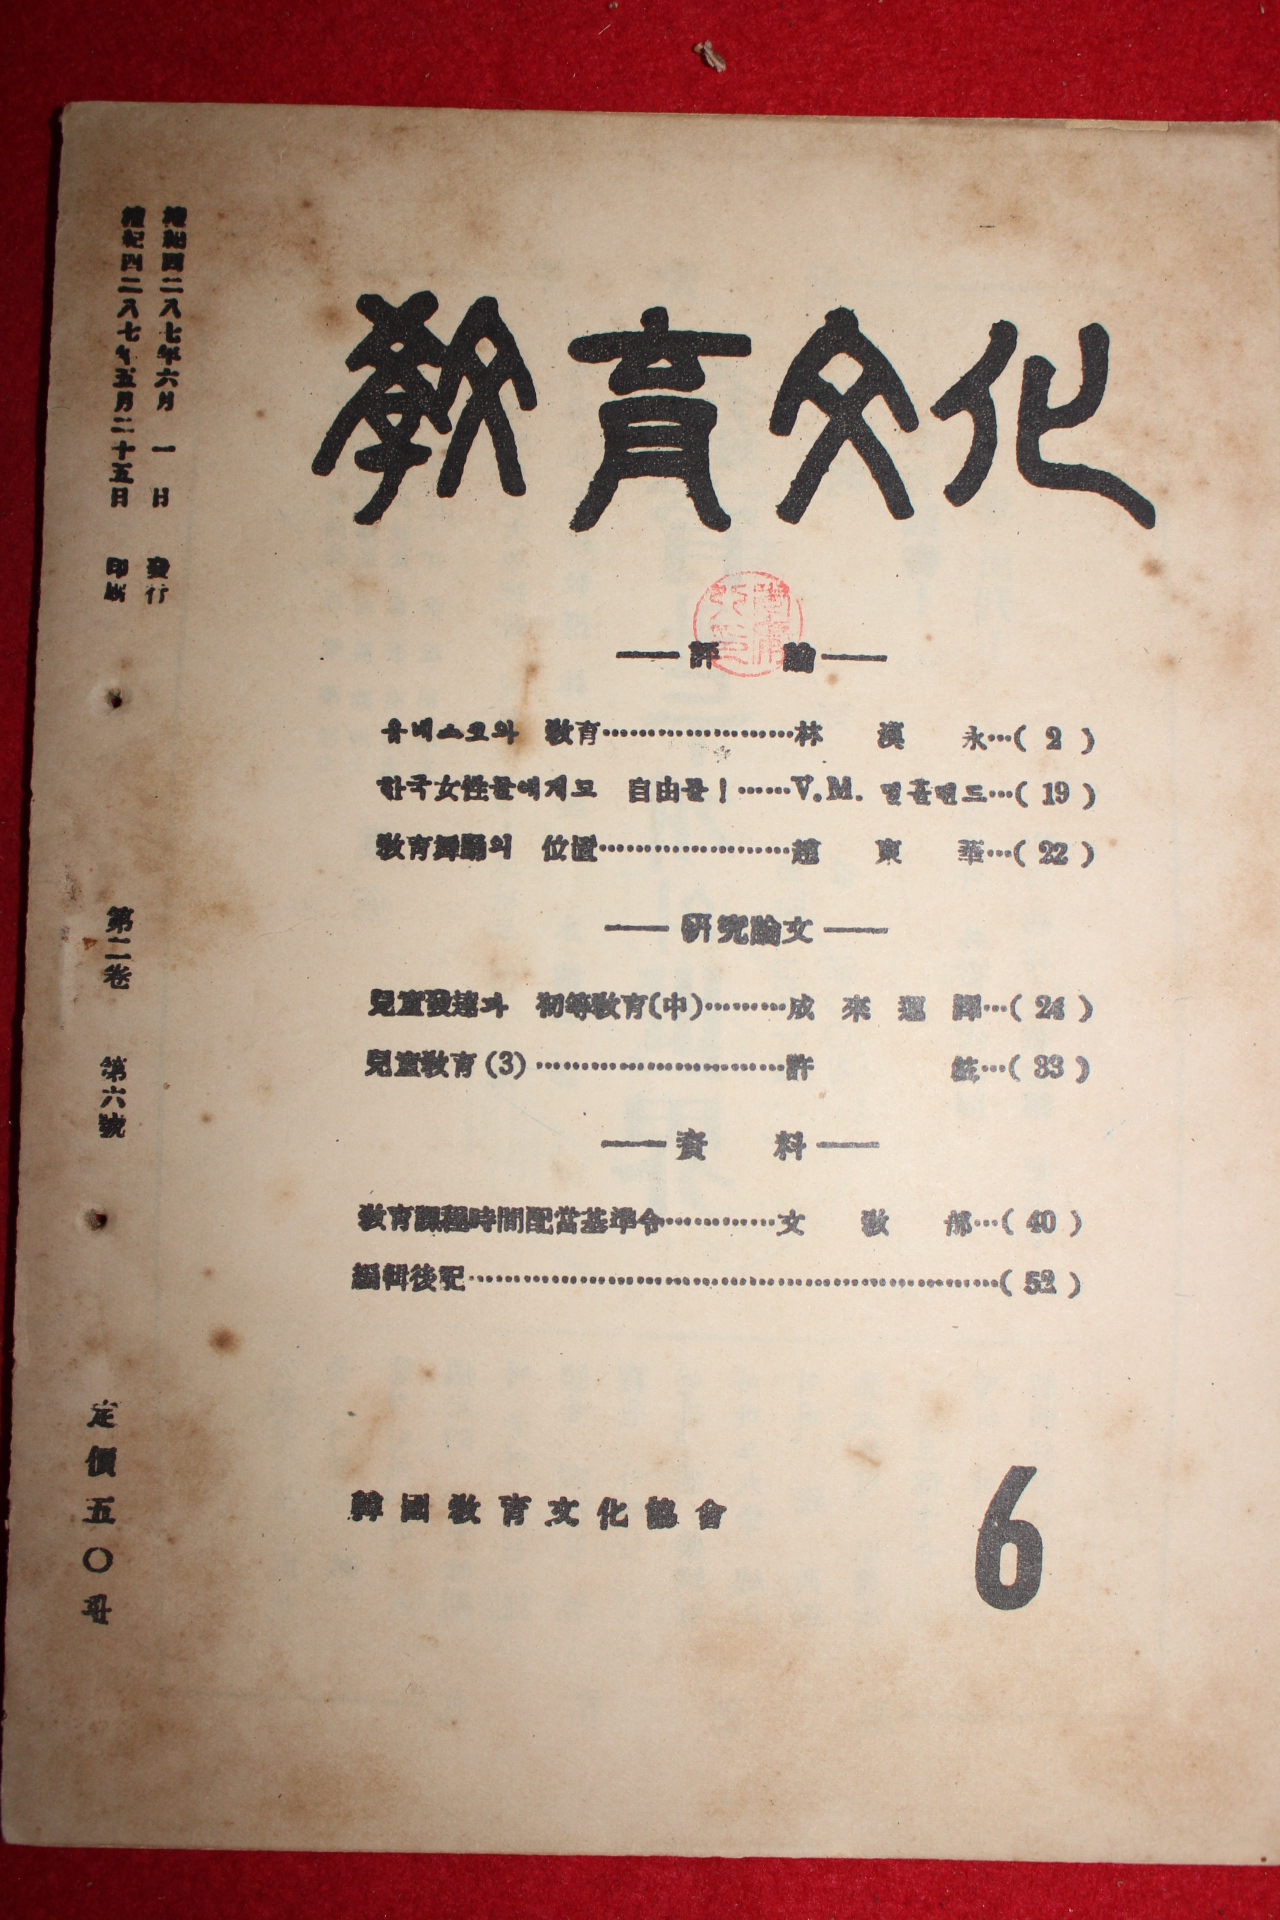 檀紀四二八七年六月一日 發行
檀紀四二八七年五月二十五日 印刷
第二卷 第六號
定價五〇圜
教育文化
—評 論—
유네스코와 教育…………………林 漢 永…( 2 )
한국女性들에게도 自由를!……V.M. …( 19 )
教育舞踊의 位置…………………趙 東 華…( 22 )
—研究論文—
兒童發達과 初等教育(中)………成 來 運 譯…( 24 )
兒童教育(3)………………………許 …( 33 )
—資 料—
教育課程時間配當基準令…………文 教 部…( 40 )
編輯後記…………………………………………………( 52 )
韓國教育文化協會
6